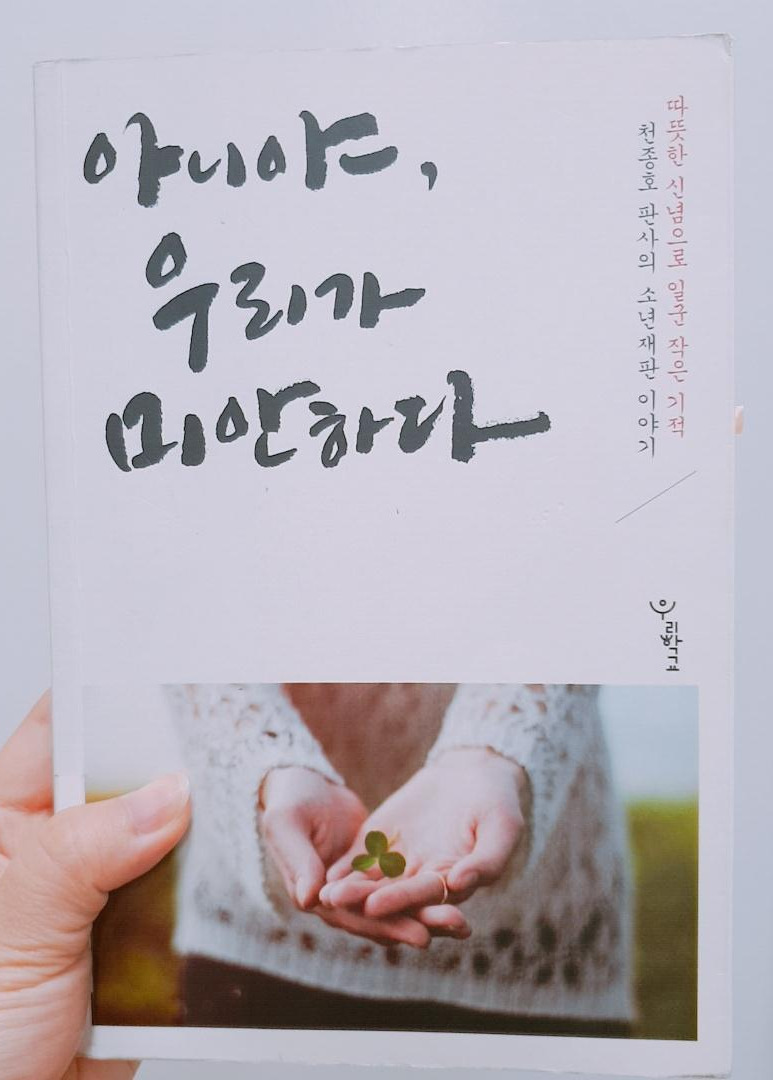 아니야,
우리가
미안하다
따뜻한 신념으로 일군 작은 기적
천종호 판사의 소년재판 이야기
우리학교